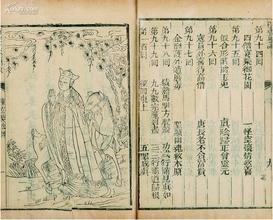 第九十四回
四僧宴樂御花園 一怪空懷情慾喜
第九十五回
假合形骸擒玉兔 真陰歸正會靈元
第九十六回
寇員外喜待高僧 唐長老不貪富貴
第九十七回
金酬外護遭魔 聖顯幽魂救本原
第九十八回
猿熟馬馴方脫殼 功成行滿見真如
第九十九回
九九數完魔 三三行滿道歸根
第一百回
回東土 五聖成真